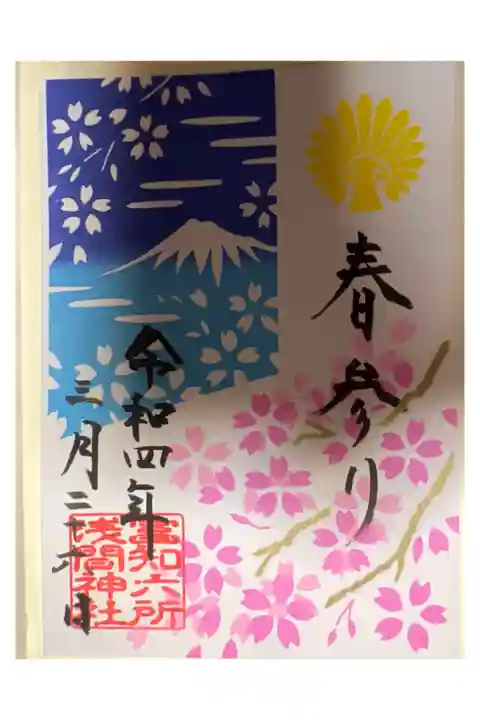 春参り
令和四年
三月二十六日
富知六所
浅間神社